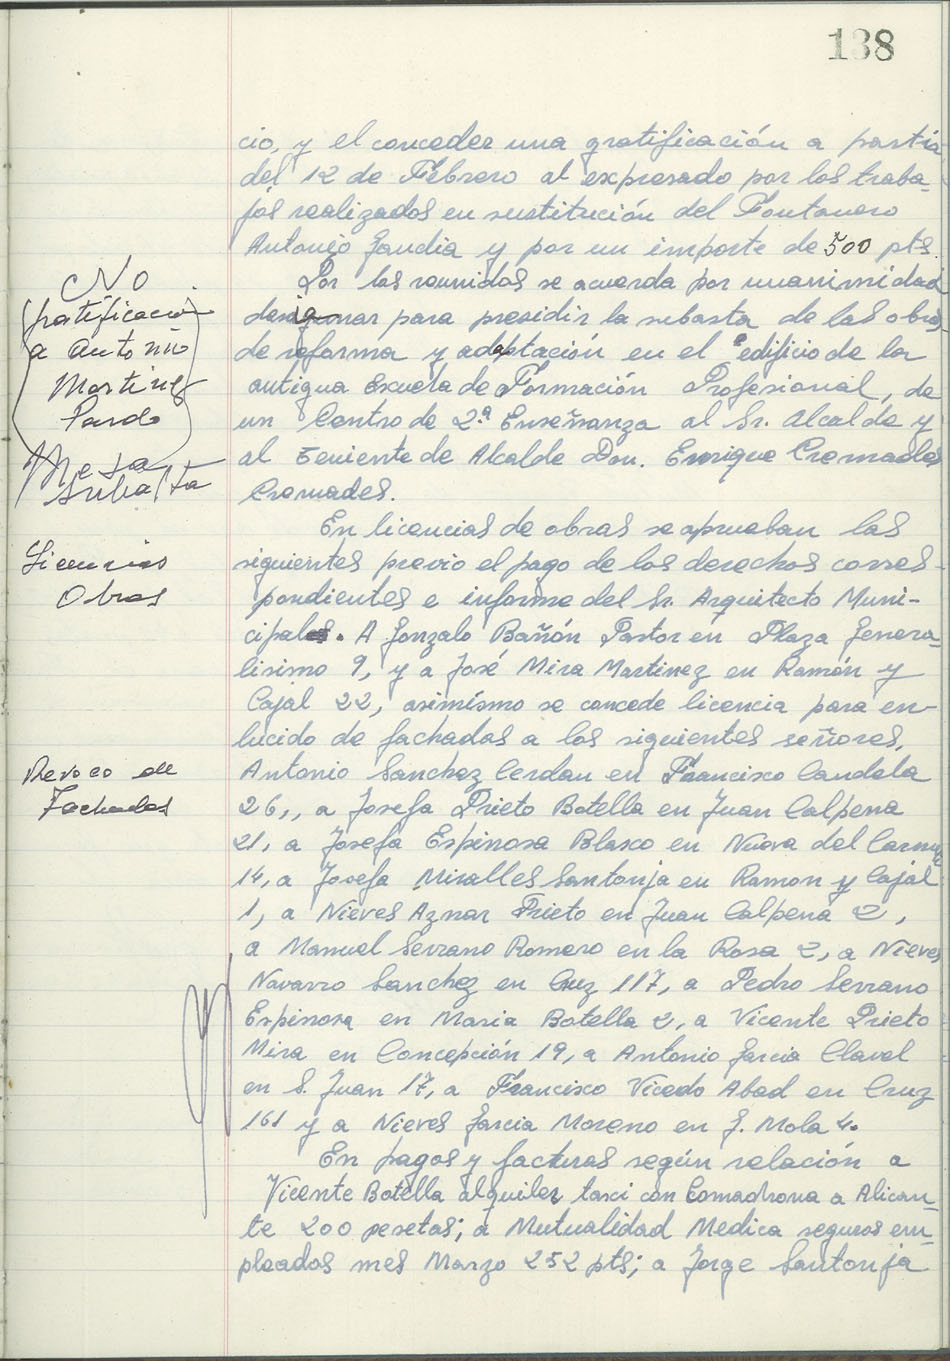 138
cio, y el conceder una gratificación a partir
del 12 de Febrero al expresado por los traba-
jos realizados en sustitución del Fontanero
Antonio Gandia y por un importe de 500 pts.
No
gratificación
a Antonio
Martinez
Pardo
Por los reunidos se acuerda por unanimidad
designar para presidir la subasta de las obras
de reforma y adaptación en el edificio de la
antigua Escuela de Formación Profesional, de
un Centro de 2ª Enseñanza al Sr. Alcalde y
al Teniente de Alcalde Don. Enrique Cremades
Cremades.
Mesa
Subasta
Licencias
Obras
En licencias de obras se aprueban las
siguientes previo el pago de los derechos corres-
pondientes e informe del Sr. Arquitecto Muni-
cipal. A Gonzalo Bañón Pastor en Plaza Genera-
lisimo 9, y a José Mira Martinez en Ramón y
Cajal 22, asimísmo se concede licencia para en-
lucido de fachadas a los siguientes señores,
Revoco de
Fachadas
Antonio Sanchez Cerdan en Francisco Candela
26,, a Josefa Prieto Botella en Juan Calpena
21, a Josefa Espinosa Blasco en Nueva del Carmen
14, a Josefa Miralles Santonja en Ramon y Cajal
1, a Nieves Aznar Prieto en Juan Calpena 2,
a Manuel Serrano Romero en la Rosa 2, a Nieves
Navarro Sanchez en Cruz 117, a Pedro Serrano
Espinosa en Maria Botella 2, a Vicente Prieto
Mira en Concepción 19, a Antonio Garcia Clavel
en S. Juan 17, a Francisco Vicedo Abad en Cruz
161 y a Nieves Garcia Moreno en G. Mola 4.
En pagos y facturas según relación a
Vicente Botella alquiler taxi con Comadrona a Alican-
te 200 pesetas; a Mutualidad Medica seguros em-
pleados mes Marzo 252 pts; a Jorge Santonja